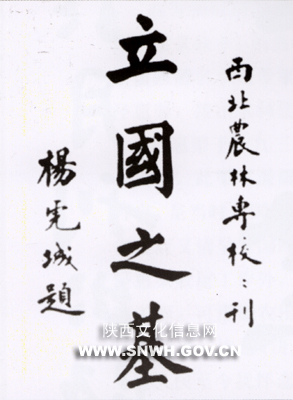 西北農林專校〻刊
立國之基
楊虎城題
陕西文化信息网
WWW.SNWH.GOV.CN